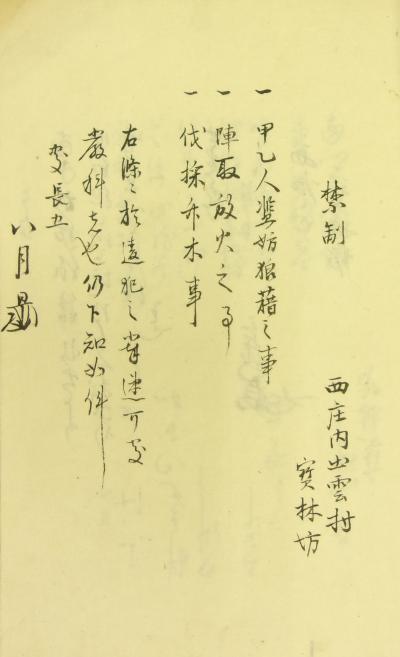 禁制
西庄内出雲村
寶林坊
一 甲乙人濫妨狼藉之事
一 陣取放火之事
一 伐採竹木事
右條々於違犯之輩速可處
嚴科者也仍下知如件
慶長五
八月